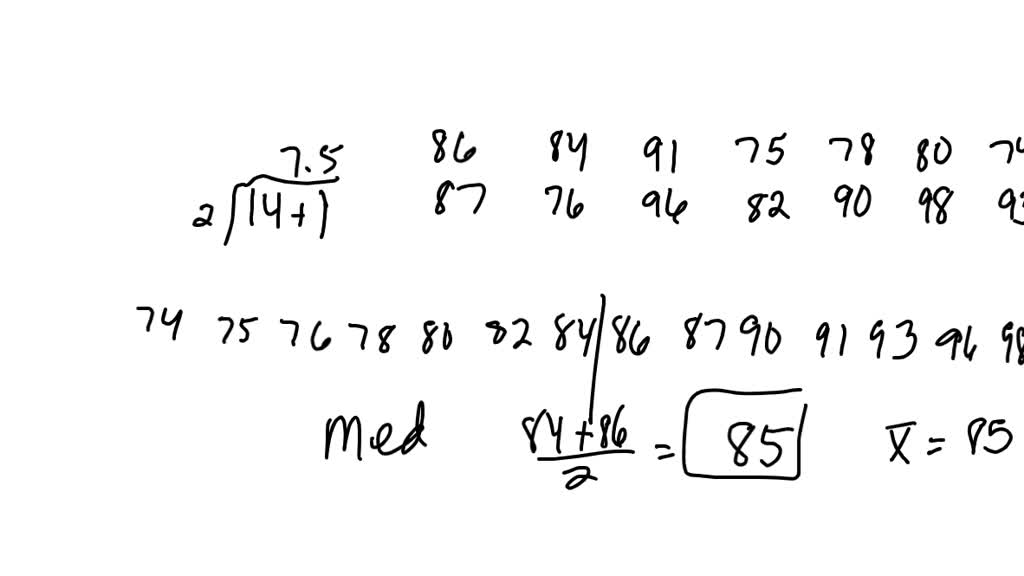 7.5
2 14+1
86 84 91 75 78 80 74
87 76 96 82 90 98 93
74 75 76 78 80 82 84 86 87 90 91 93 96 98
Med 84+86 / 2 = 85 x̄ = 85